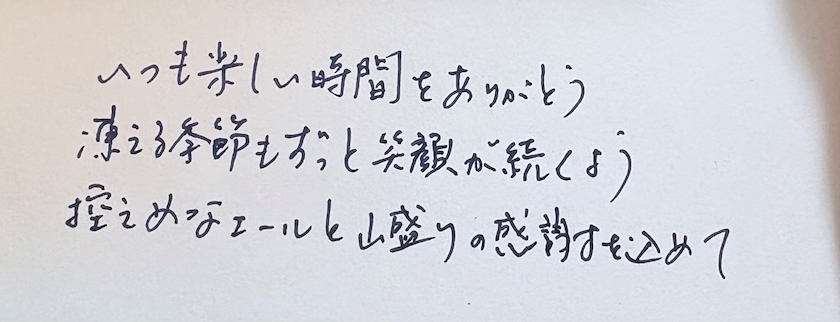 いつも楽しい時間をありがとう
凍える季節もずっと笑顔が続くよう
控えめなエールと山盛りの感謝を込めて